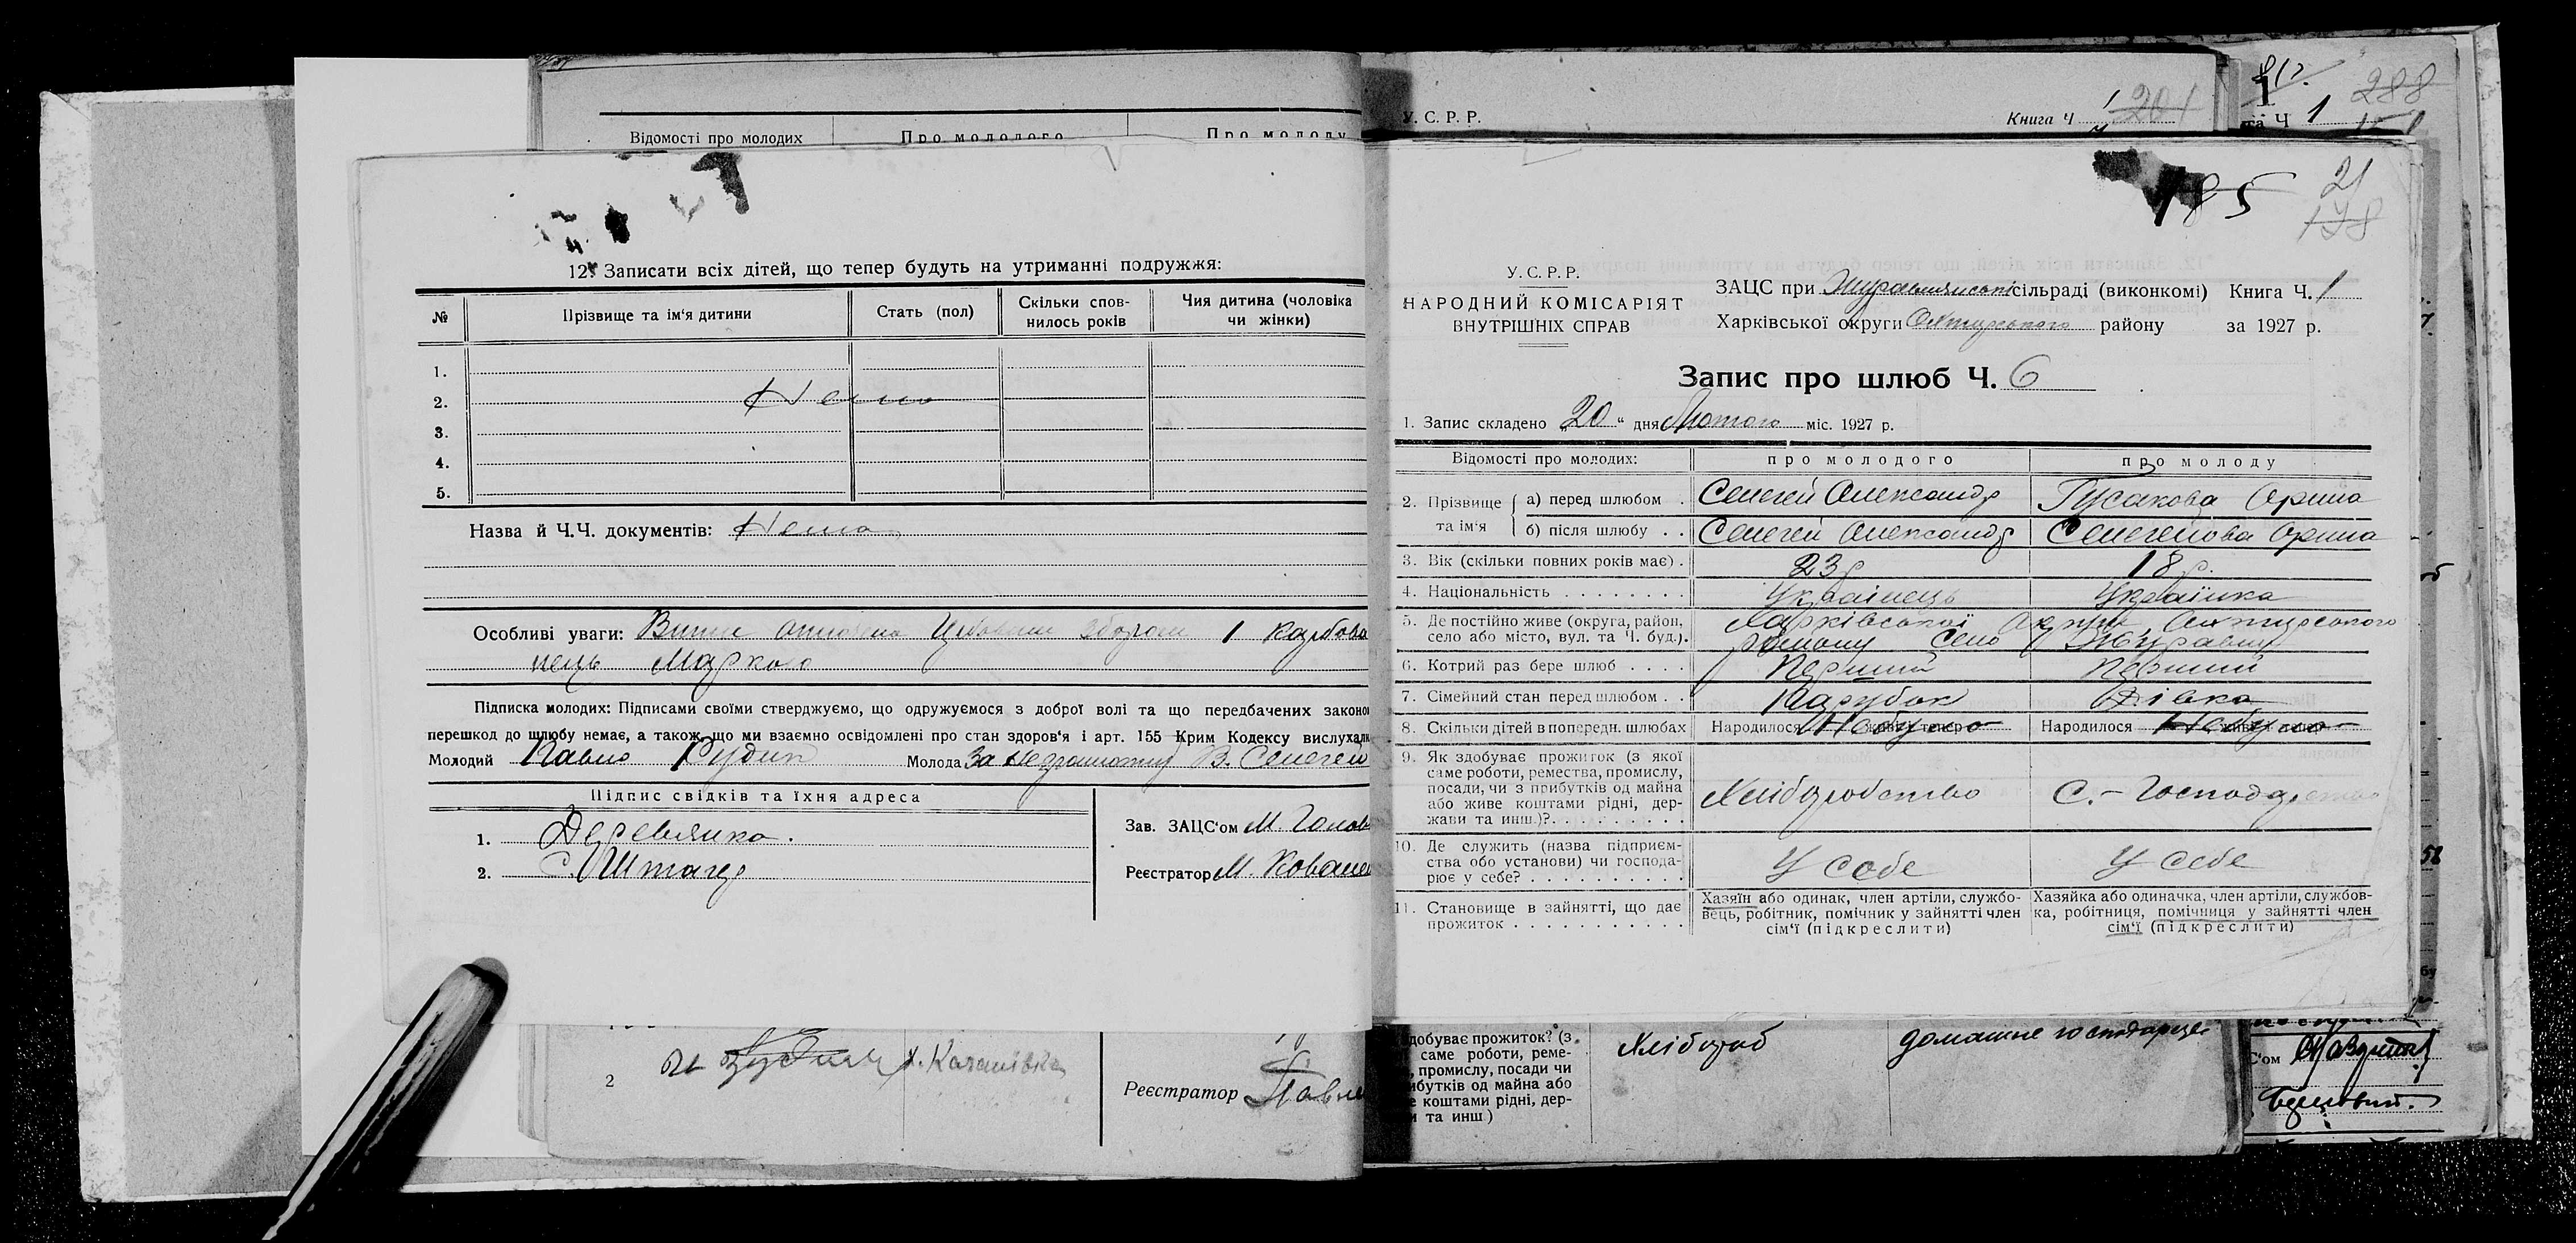 Відомості про молодих
Про молодого
Про молоду
12. Записати всіх дітей, що тепер будуть на утриманні подружжя:
№
Прізвище та ім'я дитини
Стать (пол)
Скільки спов-
нилось років
Чия дитина (чоловіка
чи жінки)
1.
2. Нема
3.
4.
5.
Назва й Ч.Ч. документів: Нема
Особливі уваги: оплачена 1 карбова
нець Маркою
Підписка молодих: Підписами своїми стверджуємо, що одружуємося з доброї волі та що передбачених законо
перешкод до шлюбу немає, а також, що ми взаємно освідомлені про стан здоров'я і арт. 155 Крим Кодексу вислухали
Молодий Павло Рудик Молода За неграмотну В. Селегей
Підпис свідків та їхня адреса
1. Деревянко.
2.
Зав. ЗАЦС'ом М.
Реєстратор М. Ковале
2
Реєстратор
У. С. Р. Р.
Книга Ч 1 201
288
Ч 1
185
21
178
У. С. Р. Р.
НАРОДНИЙ КОМІСАРІЯТ
ВНУТРІШНІХ СПРАВ
ЗАЦС при Журавлянській сільраді (виконкомі) Книга Ч. 1
Харківської округи Охтирського району за 1927 р.
Запис про шлюб Ч. 6
1. Запис складено „20“ дня Лютого міс. 1927 р.
Відомості про молодих:
про молодого
про молоду
2. Прізвище та ім'я
а) перед шлюбом . Селегей Александр Гусакова Орина
б) після шлюбу . . Селегей Александр Селегейова Орина
3. Вік (скільки повних років має) . 23 р 18 р.
4. Національність . . . . . . . . Українець Українка
5. Де постійно живе (округа, район,
село або місто, вул. та Ч. буд.).
Харківської Округи Охтирського
району село Журавне
6. Котрий раз бере шлюб . . . . Перший Перший
7. Сімейний стан перед шлюбом . . Парубок Дівка
8. Скільки дітей в попередн. шлюбах Народилося Небуло Народилося Небуло
9. Як здобуває прожиток (з якої
саме роботи, ремества, промислу,
посади, чи з прибутків од майна
або живе коштами рідні, дер-
жави та инш.)?. . . . . . . . .
Хліборобство С.-Господарство
10. Де служить (назва підприєм-
ства обо установи) чи господа-
рює у себе? . . . . . . . . . .
У себе У себе
11. Становище в зайнятті, що дає
прожиток . . . . . . . . . . .
Хазяїн або одинак, член артіли, службо-
вець, робітник, помічник у зайнятті член
сім'ї (підкреслити)
Хазяйка або одиначка, член артіли, службов-
ка, робітниця, помічниця у зайнятті член
сім'ї (підкреслити)
добуває прожиток? (з
саме роботи, реме-
, промислу, посади чи
ибутків од майна або
е коштами рідні, дер-
и та инш.)
Хлібороб
домашне господарс
С'ом